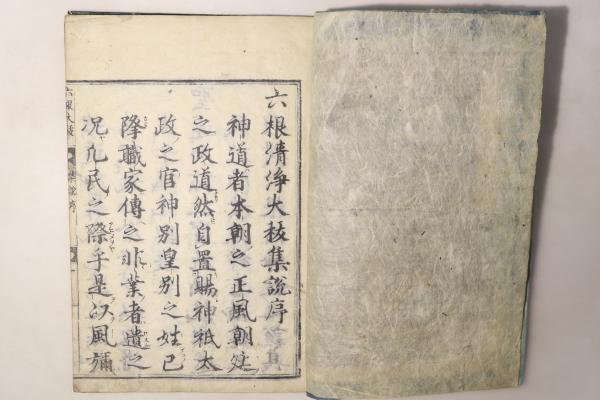 六根清浄大祓集説序
神道者本朝之正風朝廷
之政道然自置賜神祇太
政之官神別皇別之姓已
降職家傳之非業者遺之
况凡民之際乎是以風彌
六根大祓
集説序